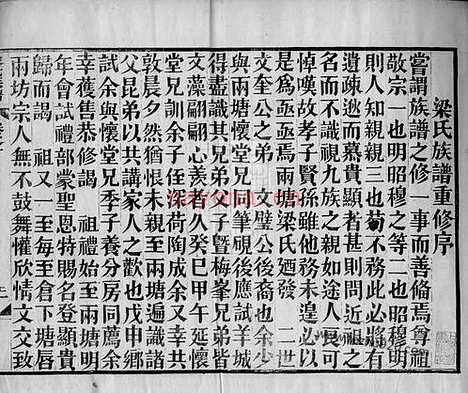 梁氏族譜重修序
嘗謂族譜之修一事而善脩焉尊祖
敬宗一也明昭穆之等二也昭穆明
則人知親親三也苟不務此必將有
遺疎逖而慕貴顯甚則問近祖之
名而不識視九族之親如途人良可
悼嘆故孝子賢孫雖他務未遑必以
是為先務焉兩塘梁氏廼發 二世
文奎公之弟 文璧公裔也余少
與兩塘懷堂兄同筆硯後應試羊城
得盡識其兄弟子暨梅峯兄弟皆
文藻翩翩心善久矣癸巳甲午延懷
堂兄訓余子侄深荷陶成余又幸共
敦晨夕然猶恨未親至兩塘遍識諸
父昆弟以共講家人之歡也戊申鄉
試余與懷堂兄季子養分房同薦余
幸獲售恭修謁 祖禮始至兩塘明
年會試禮部蒙聖恩特賜名登顯貴
歸而謁 祖又一至每至倉下塘唇
兩坊宗人無不鼓舞懽欣情文交致